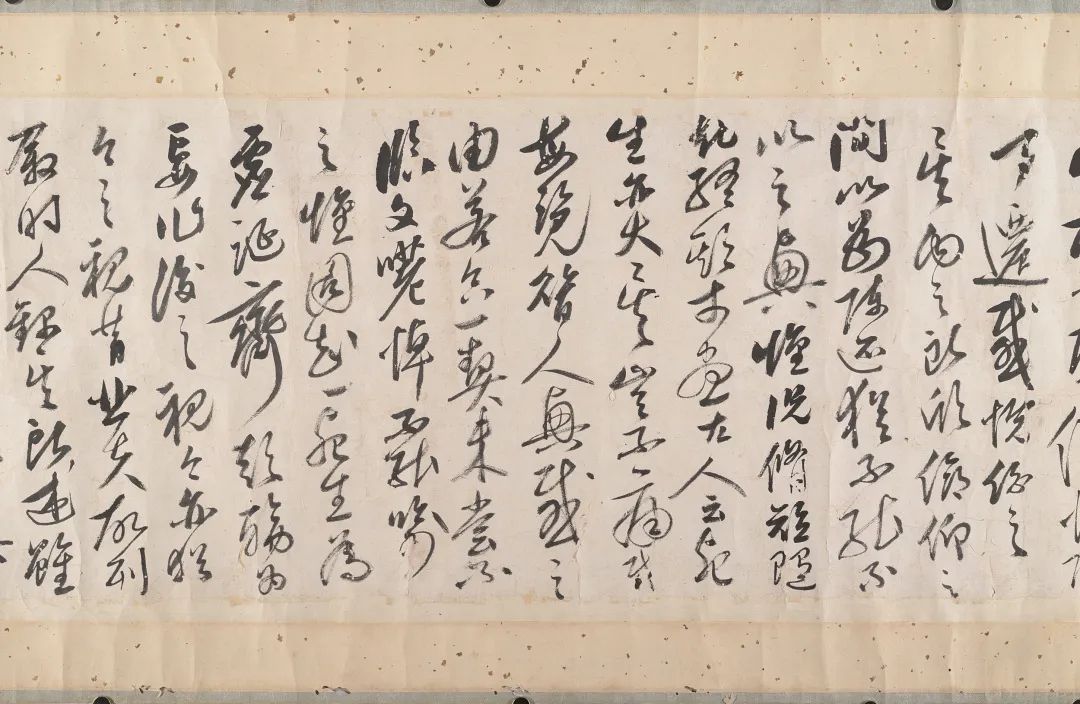 事遷感慨係之
矣向之所欣俛仰之
間以為陳迹猶不能不
以之興懷況脩短隨
化終期於盡古人云死
生亦大矣豈不痛哉
每覽昔人興感之
由若合一契未嘗不
臨文嗟悼不能喻
之懷固知一死生為
虛誕齊彭殤為
妄作後之視今亦猶
今之視昔悲夫故列
敘時人錄其所述雖